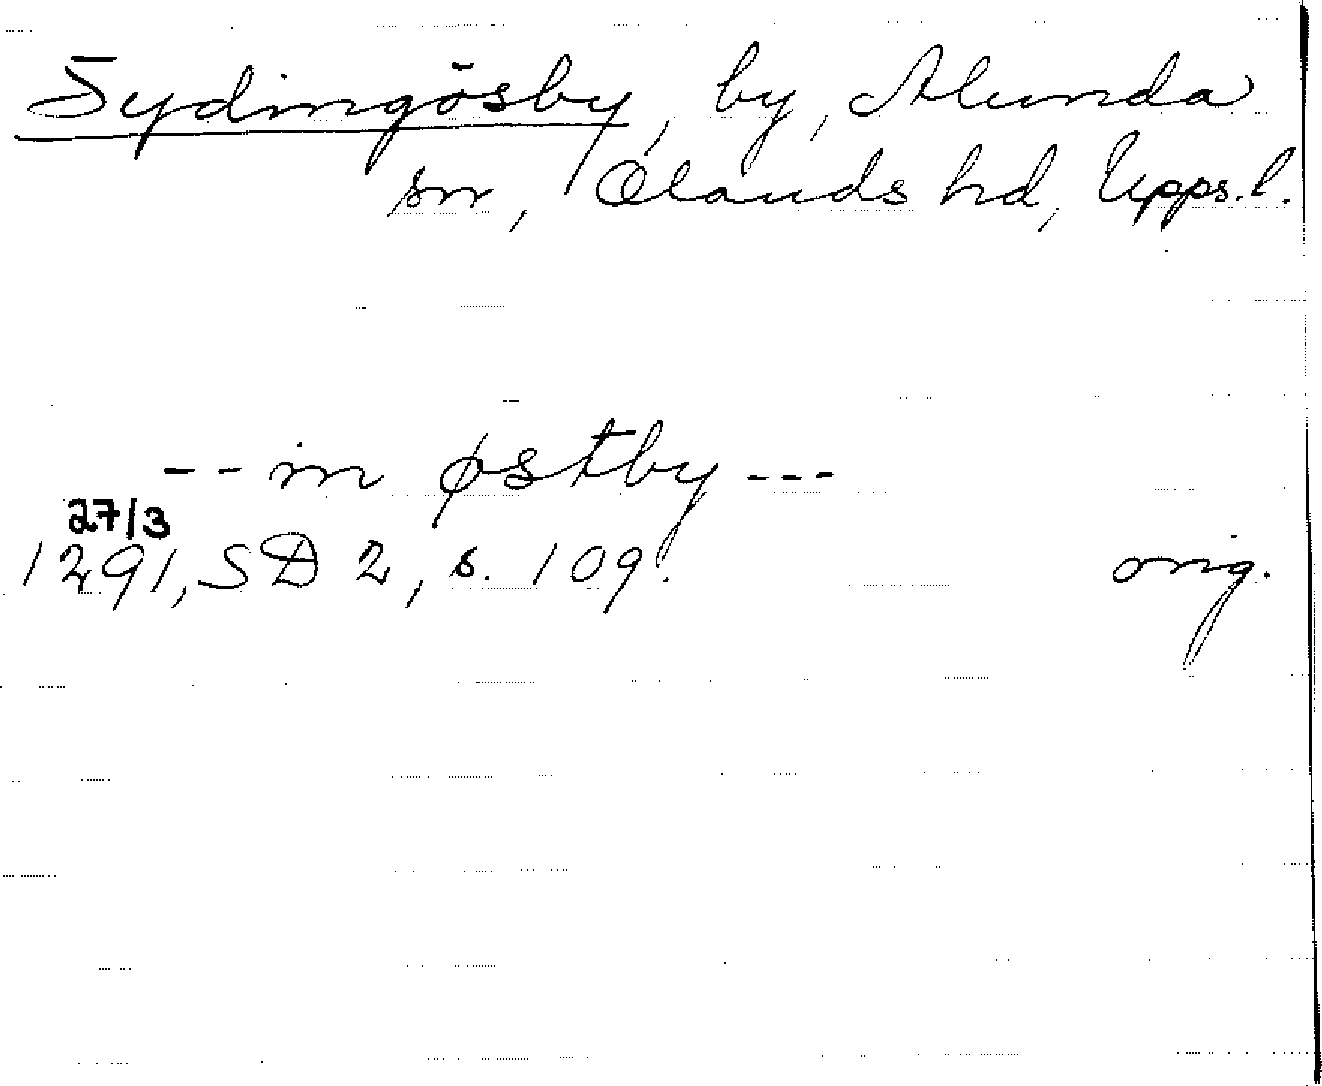 Sydingösby, by, Alunda
sn, Ölands hd, Upps. l.
-- in østby ---
27/3
1291, SD 2, s. 109.
orig.